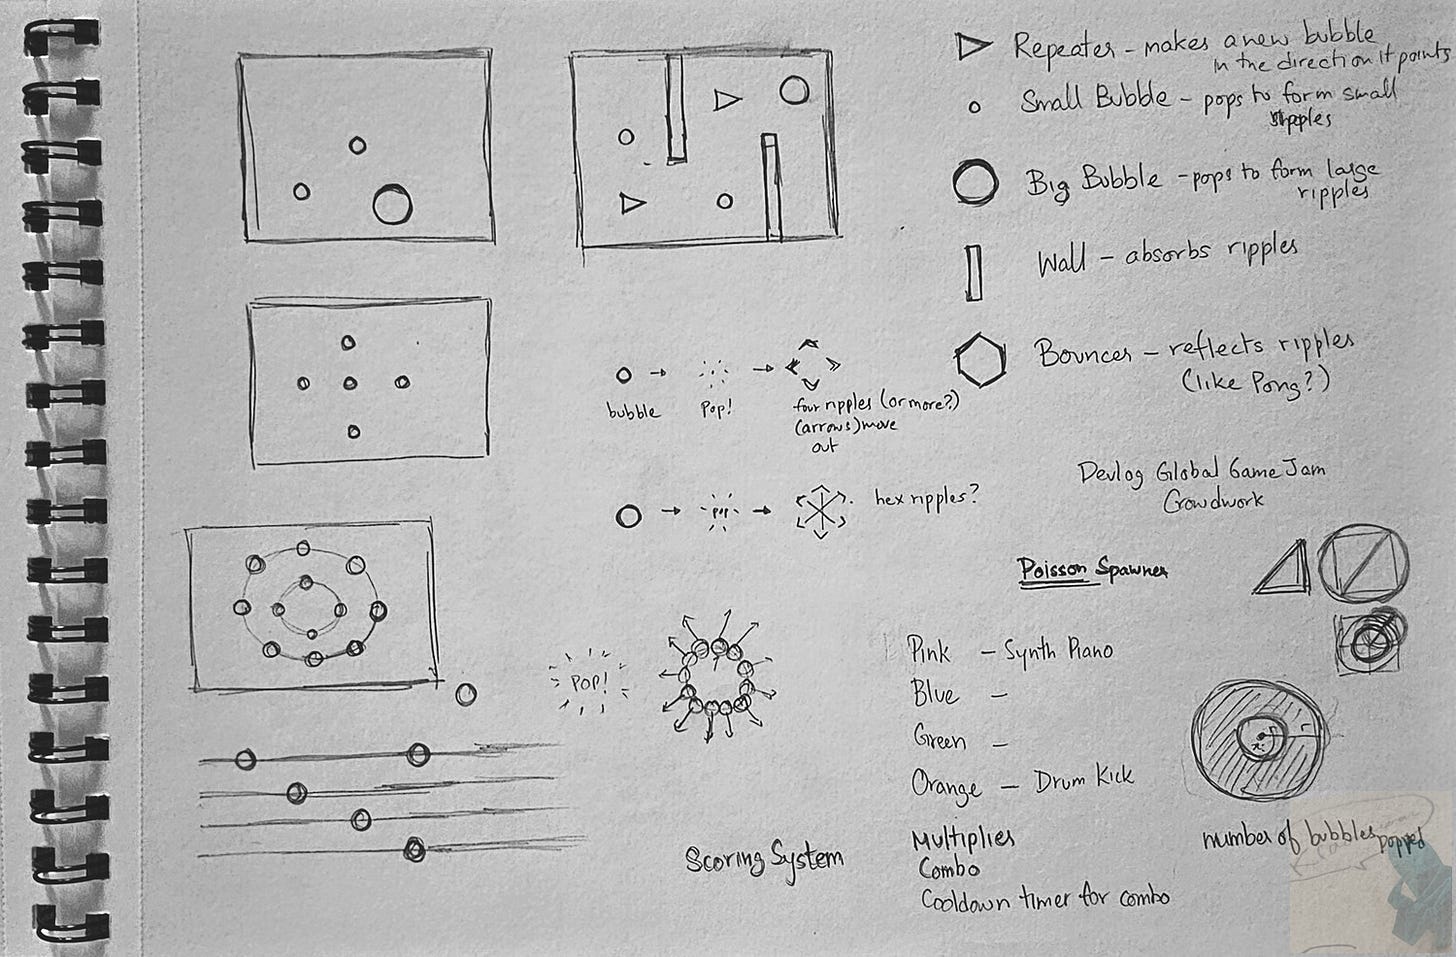 Repeater - makes a new bubble
in the direction it points
Small Bubble - pops to form small
ripples
Big Bubble - pops to form large
ripples
Wall - absorbs ripples
Bouncer - reflects ripples
(like Pong?)
bubble
Pop!
four ripples (or more?)
(arrows) move
out
POP
hex ripples?
Devlog Global Game Jam
Crowdwork
Poisson Spawner
POP!
Pink - Synth Piano
Blue -
Green -
Orange - Drum Kick
Scoring System
Multiplies
Combo
Cooldown timer for combo
number of bubbles popped